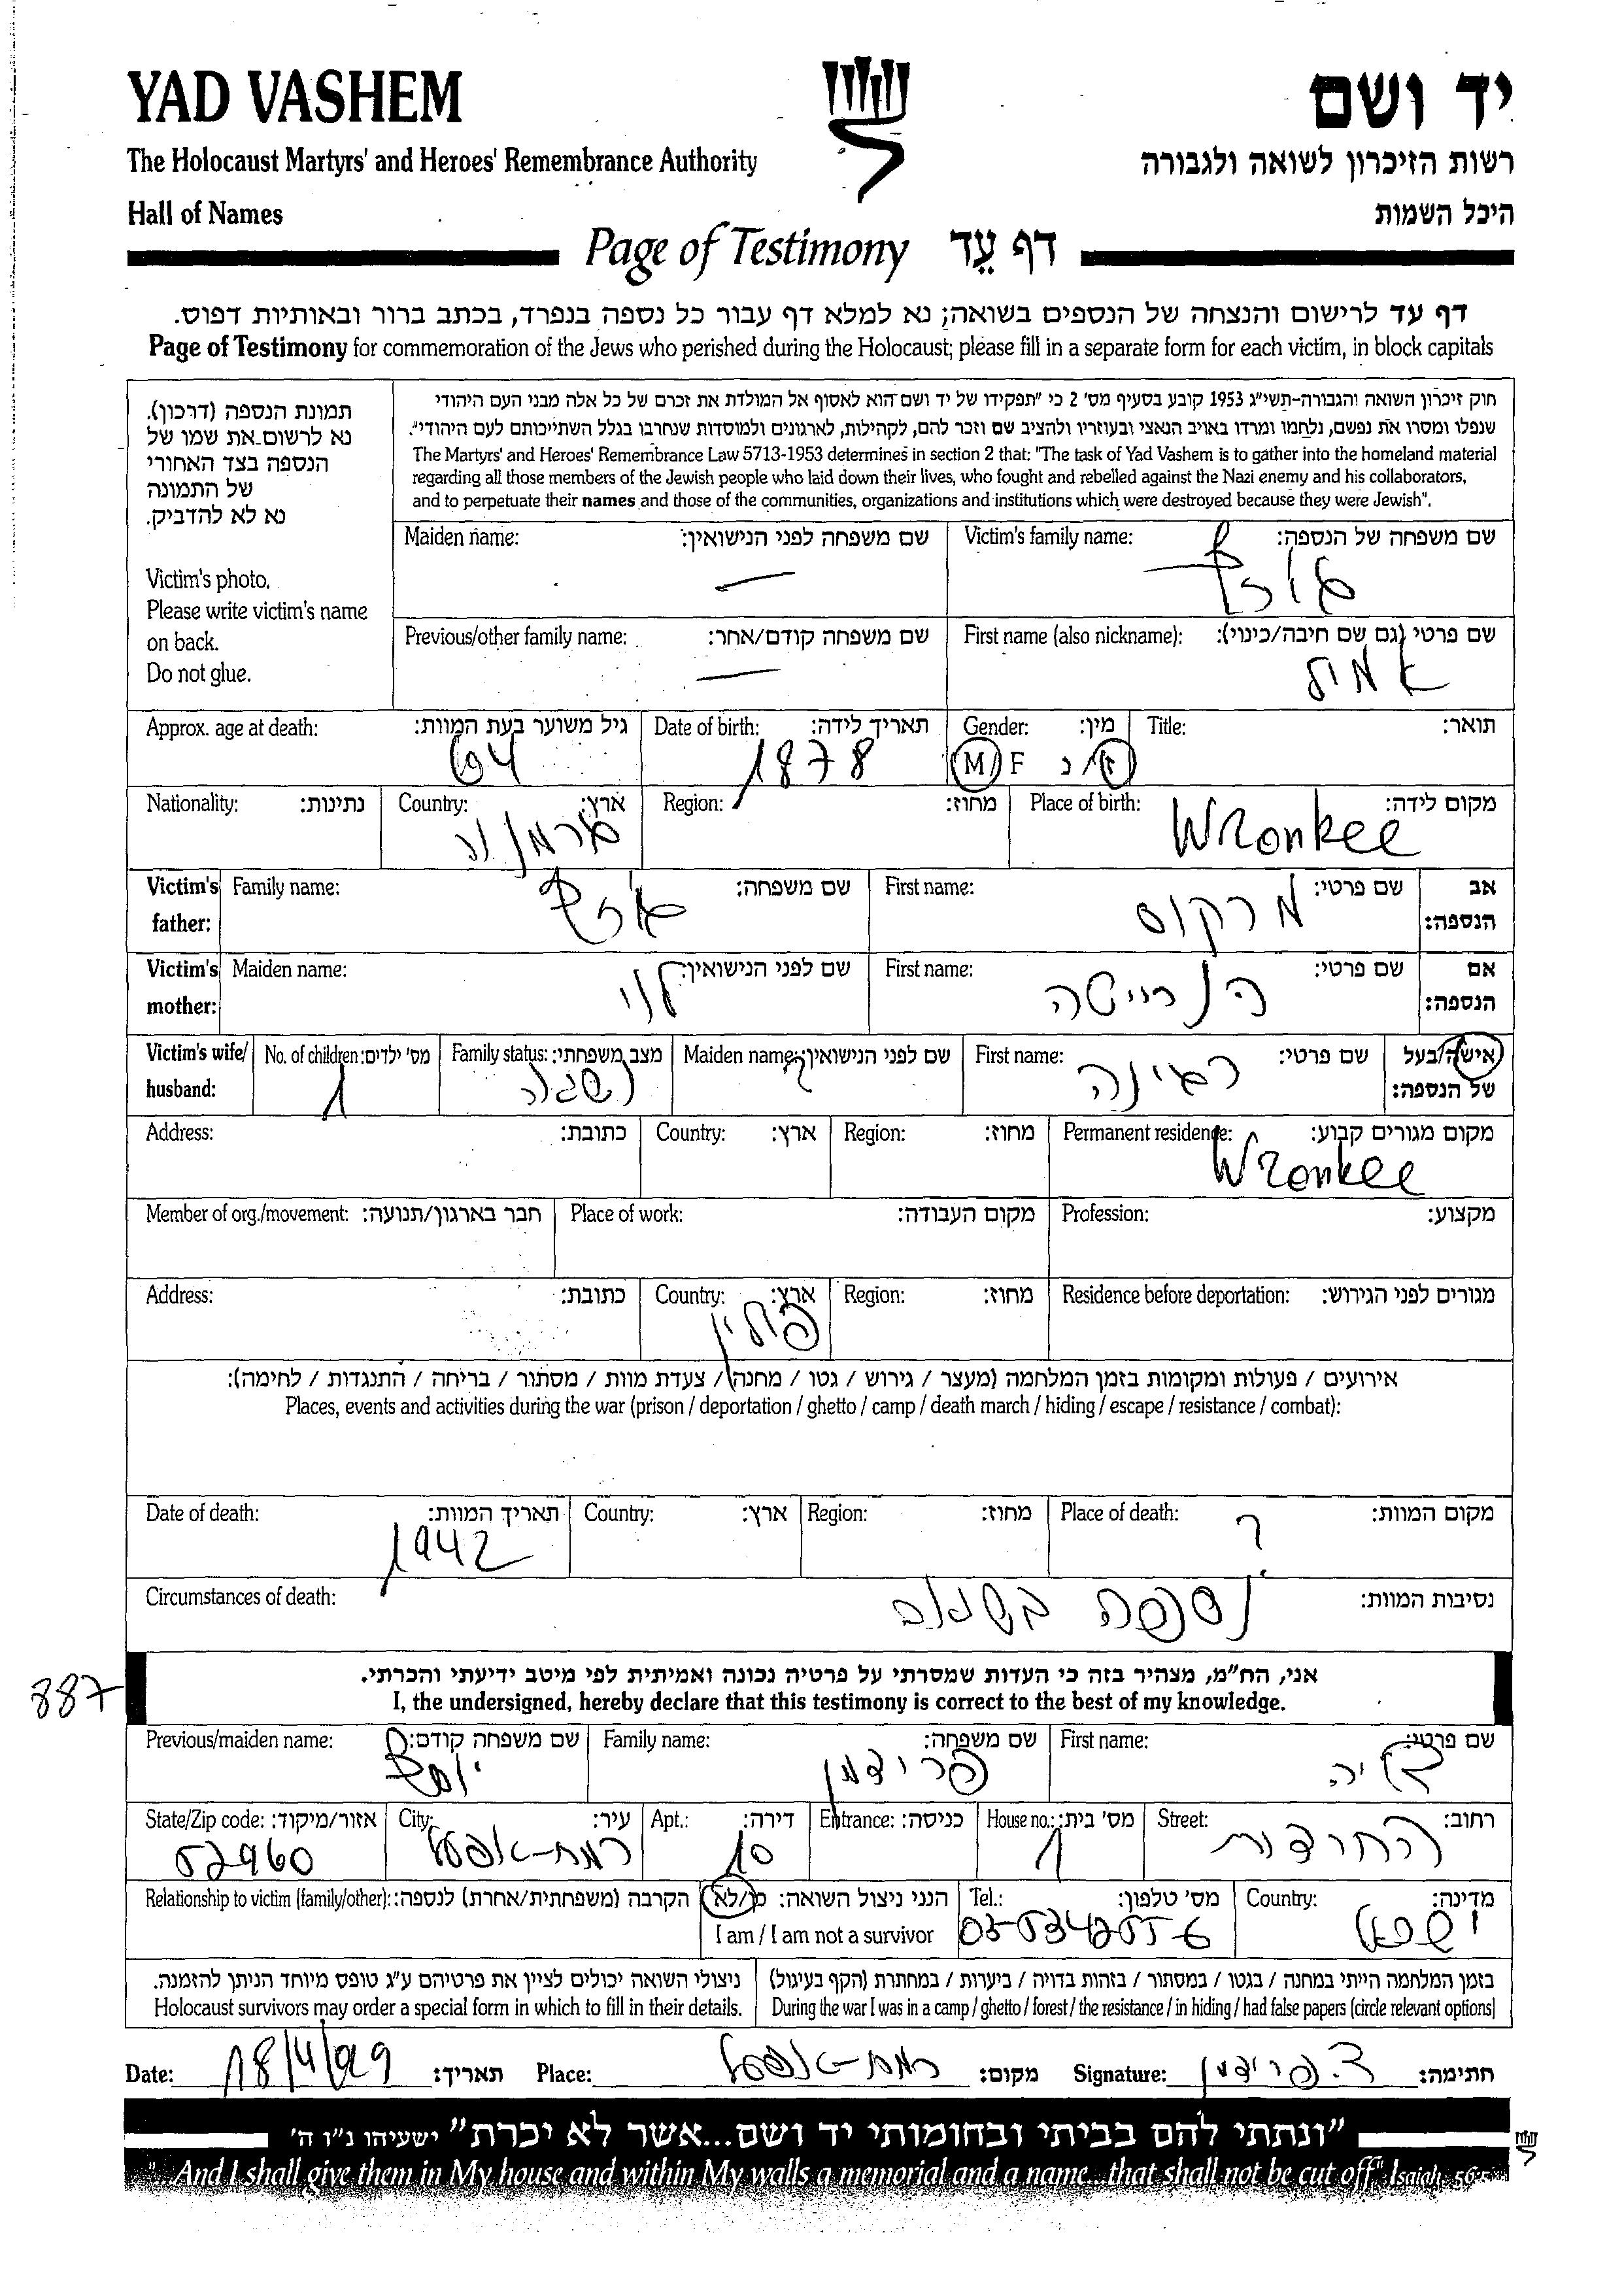 YAD VASHEM
יד ושם
The Holocaust Martyrs' and Heroes' Remembrance Authority
רשות הזיכרון לשואה ולגבורה
Hall of Names
היכל השמות
Page of Testimony דף עֵד
דף עד לרישום והנצחה של הנספים בשואה; נא למלא דף עבור כל נספה בנפרד, בכתב ברור ובאותיות דפוס.
Page of Testimony for commemoration of the Jews who perished during the Holocaust; please fill in a separate form for each victim, in block capitals
תמונת הנספה (דרכון).
נא לרשום את שמו של
הנספה בצד האחורי
של התמונה
נא לא להדביק.
Victim's photo.
Please write victim's name
on back.
Do not glue.
חוק זיכרון השואה והגבורה-תשי"ג 1953 קובע בסעיף מס' 2 כי "תפקידו של יד ושם הוא לאסוף אל המולדת את זכרם של כל אלה מבני העם היהודי
שנפלו ומסרו את נפשם, נלחמו ומרדו באויב הנאצי ובעוזריו ולהציב שם וזכר להם, לקהילות, לארגונים ולמוסדות שנחרבו בגלל השתייכותם לעם היהודי".
The Martyrs' and Heroes' Remembrance Law 5713-1953 determines in section 2 that: "The task of Yad Vashem is to gather into the homeland material
regarding all those members of the Jewish people who laid down their lives, who fought and rebelled against the Nazi enemy and his collaborators,
and to perpetuate their names and those of the communities, organizations and institutions which were destroyed because they were Jewish".
Maiden name: שם משפחה לפני הנישואין: Victim's family name: שם משפחה של הנספה:
—
Previous/other family name: שם משפחה קודם/אחר: First name (also nickname): שם פרטי (גם שם חיבה/כינוי):
—
Approx. age at death: גיל משוער בעת המוות: Date of birth: תאריך לידה: Gender: מין: Title: תואר:
64 1878 M/F ז/נ
Nationality: נתינות: Country: ארץ: Region: מחוז: Place of birth: מקום לידה:
גרמניה Wronkee
Victim's father: Family name: שם משפחה: First name: שם פרטי: אב הנספה:
מרקוס
Victim's mother: Maiden name: שם לפני הנישואין: First name: שם פרטי: אם הנספה:
לוי הנריישה
Victim's wife/ husband: No. of children: מס' ילדים: Family status: מצב משפחתי: Maiden name: שם לפני הנישואין: First name: שם פרטי: אישה/בעל של הנספה:
1 נשוי ? רגינה
Address: כתובת: Country: ארץ: Region: מחוז: Permanent residence: מקום מגורים קבוע:
Wronkee
Member of org./movement: חבר בארגון/תנועה: Place of work: מקום העבודה: Profession: מקצוע:
Address: כתובת: Country: ארץ: Region: מחוז: Residence before deportation: מגורים לפני הגירוש:
פולין
אירועים / פעולות ומקומות בזמן המלחמה (מעצר / גירוש / גטו / מחנה / צעדת מוות / מסתור / בריחה / התנגדות / לחימה):
Places, events and activities during the war (prison / deportation / ghetto / camp / death march / hiding / escape / resistance / combat):
Date of death: תאריך המוות: Country: ארץ: Region: מחוז: Place of death: מקום המוות:
1942 ?
Circumstances of death: נסיבות המוות:
נספה בשואה
887
אני, הח"מ, מצהיר בזה כי העדות שמסרתי על פרטיה נכונה ואמיתית לפי מיטב ידיעתי והכרתי.
I, the undersigned, hereby declare that this testimony is correct to the best of my knowledge.
Previous/maiden name: שם משפחה קודם: Family name: שם משפחה: First name: שם פרטי:
פרידמן
State/Zip code: אזור/מיקוד: City: עיר: Apt.: דירה: Entrance: כניסה: House no.: מס' בית: Street: רחוב:
52960 רמת-אפעל 10 1
Relationship to victim (family/other): הקרבה (משפחתית/אחרת) לנספה: הנני ניצול השואה: כן/לא Tel.: מס' טלפון: Country: מדינה:
I am / I am not a survivor 03-5342556 ישראל
ניצולי השואה יכולים לציין את פרטיהם ע"ג טופס מיוחד הניתן להזמנה.
Holocaust survivors may order a special form in which to fill in their details.
בזמן המלחמה הייתי במחנה / בגטו / במסתור / בזהות בדויה / ביערות / במחתרת (הקף בעיגול)
During the war I was in a camp / ghetto / forest / the resistance / in hiding / had false papers (circle relevant options)
Date: 18/4/99 תאריך: Place: רמת-אפעל מקום: Signature: פרידמן חתימה:
"ונתתי להם בביתי ובחומותי יד ושם...אשר לא יכרת" ישעיהו נ"ו ה'
"...And I shall give them in My house and within My walls a memorial and a name...that shall not be cut off" Isaiah 56:5